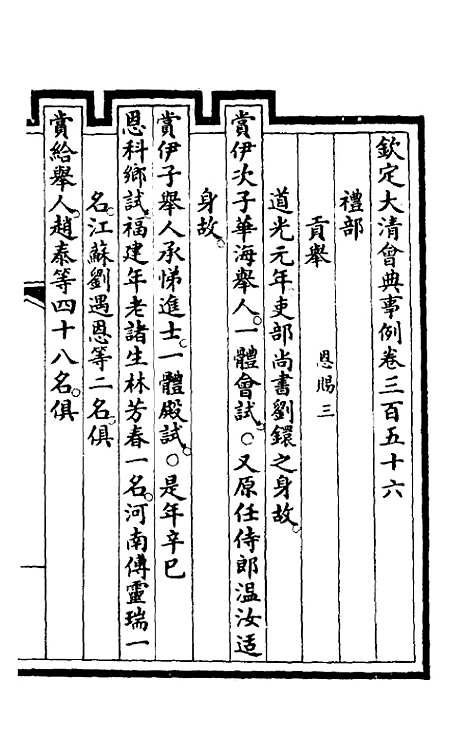 欽定大清會典事例卷三百五十六
禮部
貢舉　恩賜三
道光元年吏部尚書劉鐶之身故。
賞伊次子華海舉人。一體會試。○又原任侍郎温汝适
身故。
賞伊子舉人承悌進士。一體殿試。○是年辛巳
恩科鄉試。福建年老諸生林芳春一名。河南傅靈瑞一
名。江蘇劉遇恩等二名。俱
賞給舉人。趙泰等四十八名。俱